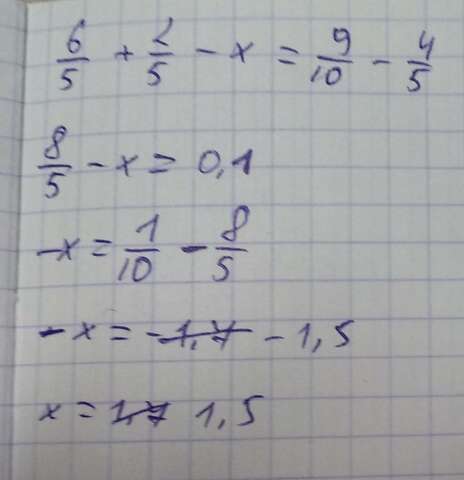 6/5 + 2/5 - x = 9/10 - 4/5
8/5 - x = 0,1
-x = 1/10 - 8/5
-x = -1,7 - 1,5
x = 1,7 1,5